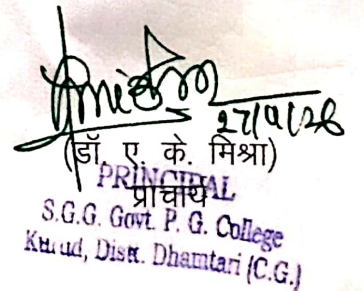 27/9/26
(डॉ. ए. के. मिश्रा)
PRINCIPAL
प्राचार्य
S.G.G. Govt. P. G. College
Kurud, Distt. Dhamtari (C.G.)